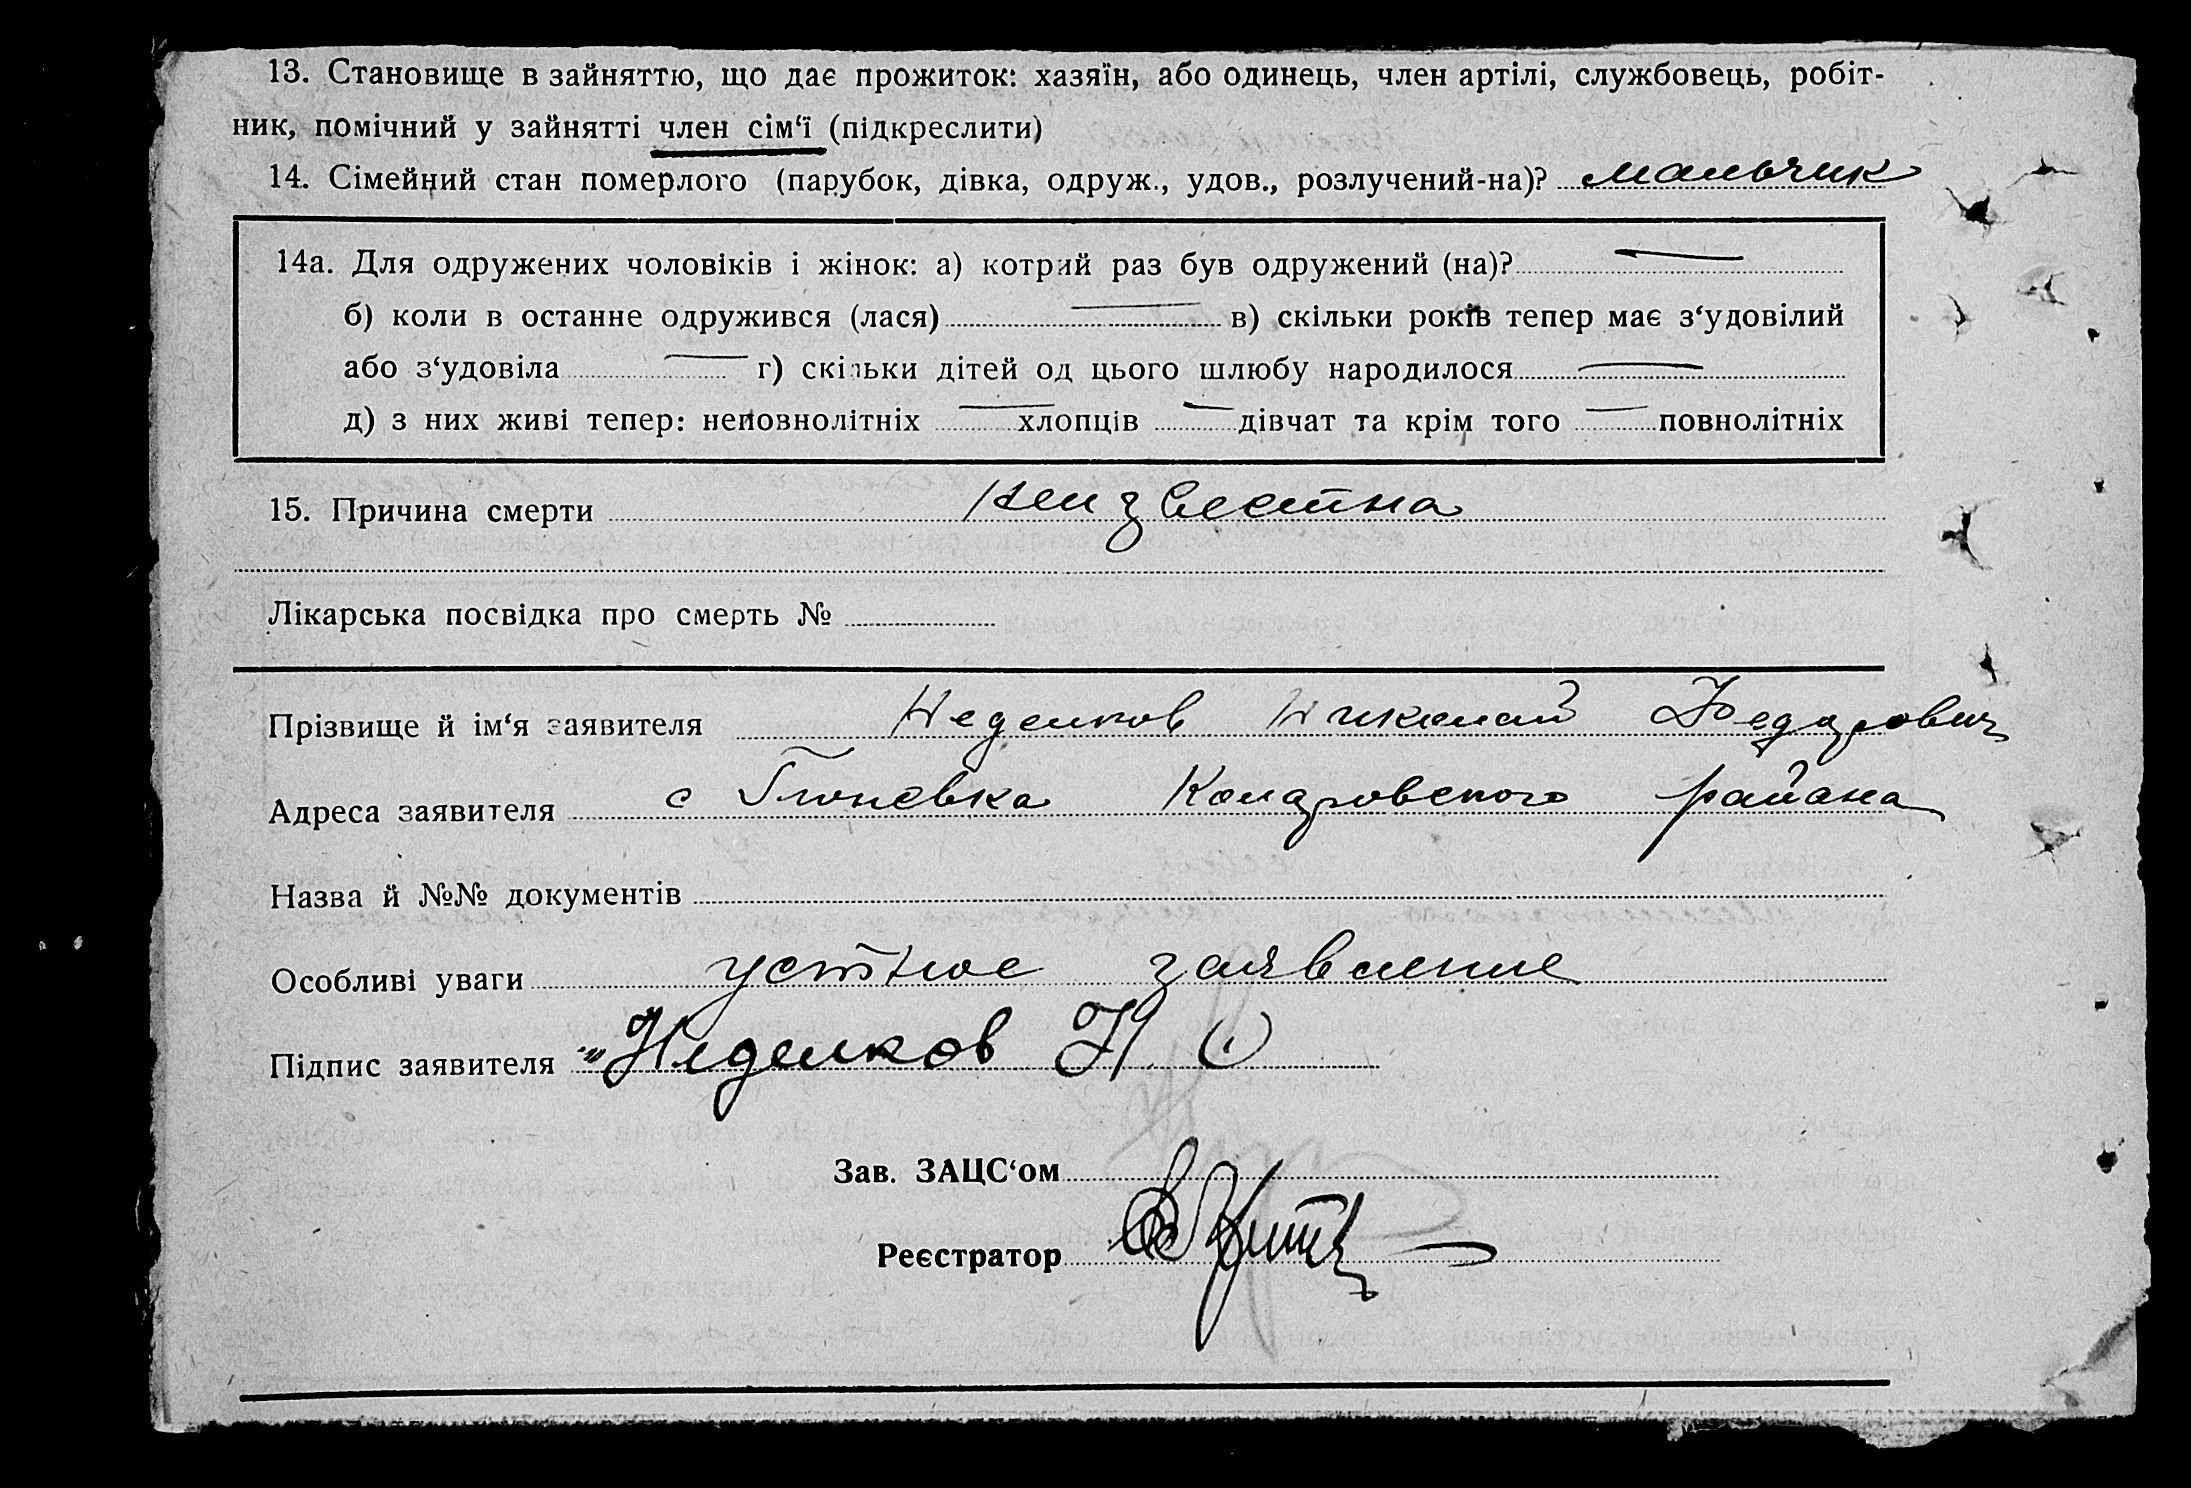 13. Становище в зайняттю, що дає прожиток: хазяїн, або одинець, член артілі, службовець, робіт-
ник, помічний у зайнятті член сім‘ї (підкреслити)
14. Сімейний стан померлого (парубок, дівка, одруж., удов., розлучений-на)? мальчик
14а. Для одружених чоловіків і жінок: а) котрий раз був одружений (на)?
б) коли в останне одружився (лася) в) скільки років тепер має з‘удовілий
або з‘удовіла г) скільки дітей од цього шлюбу народилося
д) з них живі тепер: неповнолітніх хлопців дівчат та крім того повнолітніх
15. Причина смерти неизвестна
Лікарська посвідка про смерть №
Прізвище й ім‘я заявителя Неделков Николай Федорович
Адреса заявителя с района
Назва й №№ документів
Особливі уваги устное заявление
Підпис заявителя Неделков Н
Зав. ЗАЦС‘ом
Реєстратор